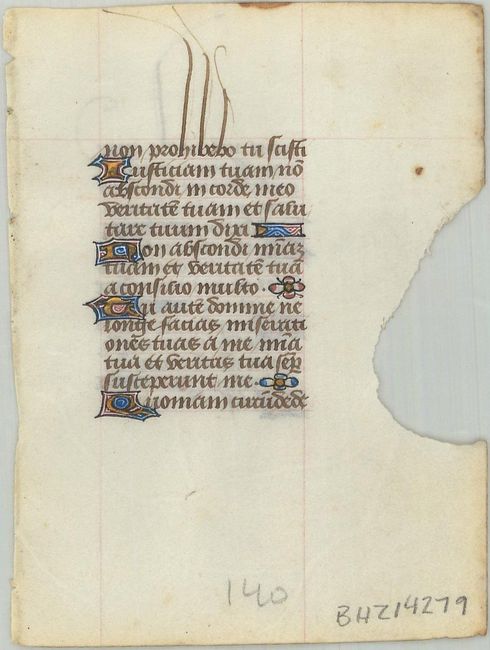 non prohibebo tu scisti
Iusticiam tuam nō
abscondi in corde meo
veritatē tuam et salu
tare tuum dixi
Non abscondi mīaz
tuam et veritatē tuā
a consilio multo
Tu autē domine ne
longe facias miserati
ones tuas a me mīa
tua et veritas tua sēp
susceperunt me
Quoniam circūdede
140
BHZ14279